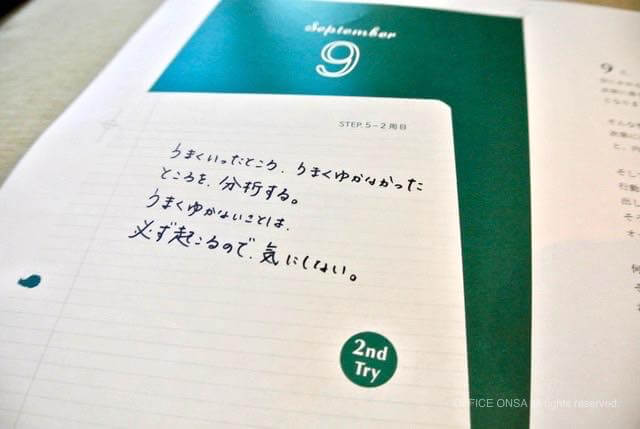 September
9
STEP. 5－2周目
うまくいったところ、うまくゆかなかった
ところを、分析する。
うまくゆかないことは、
必ず起こるので、気にしない。
2nd
Try
OFFICE ONSA all rights reserved.